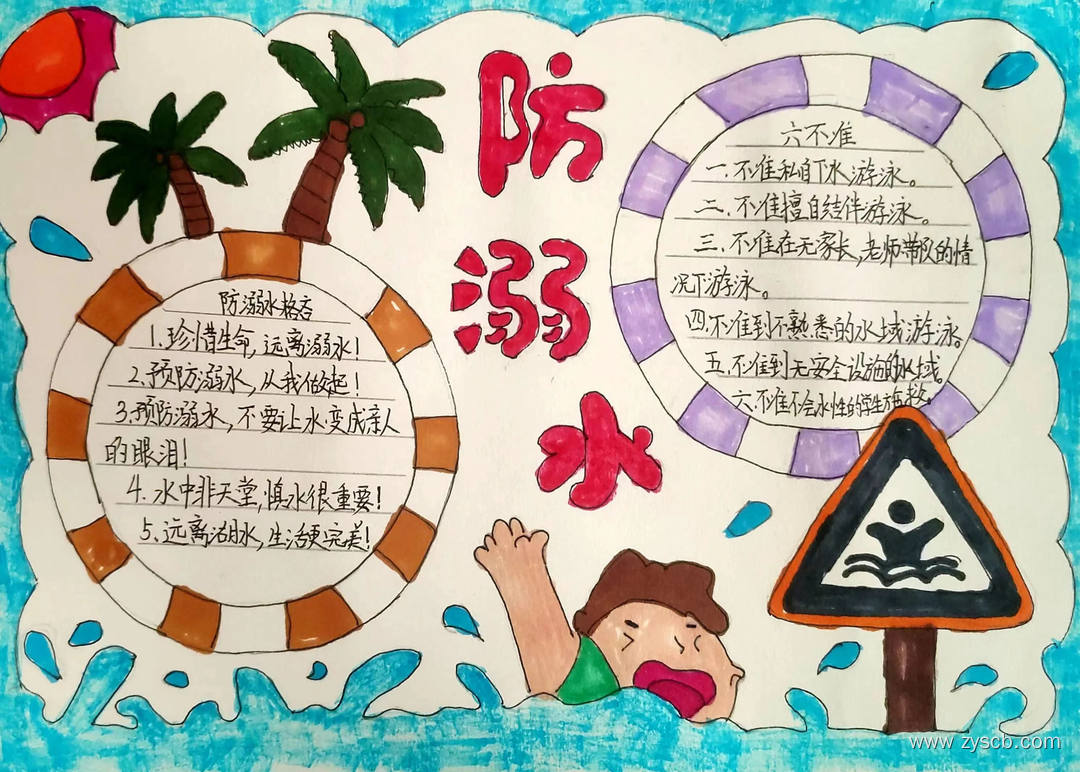 防
溺
水
防溺水格言
1.珍惜生命,远离溺水!
2.预防溺水,从我做起!
3.预防溺水,不要让水变成亲人
的眼泪!
4.水中非天堂,慎水很重要!
5.远离湖水,生活更完美!
六不准
一.不准私自下水游泳。
二.不准擅自结伴游泳。
三.不准在无家长,老师带队的情
况下游泳。
四.不准到不熟悉的水域游泳。
五.不准到无安全设施的水域。
六.不准不会水性的学生施救。
www.zyscb.com